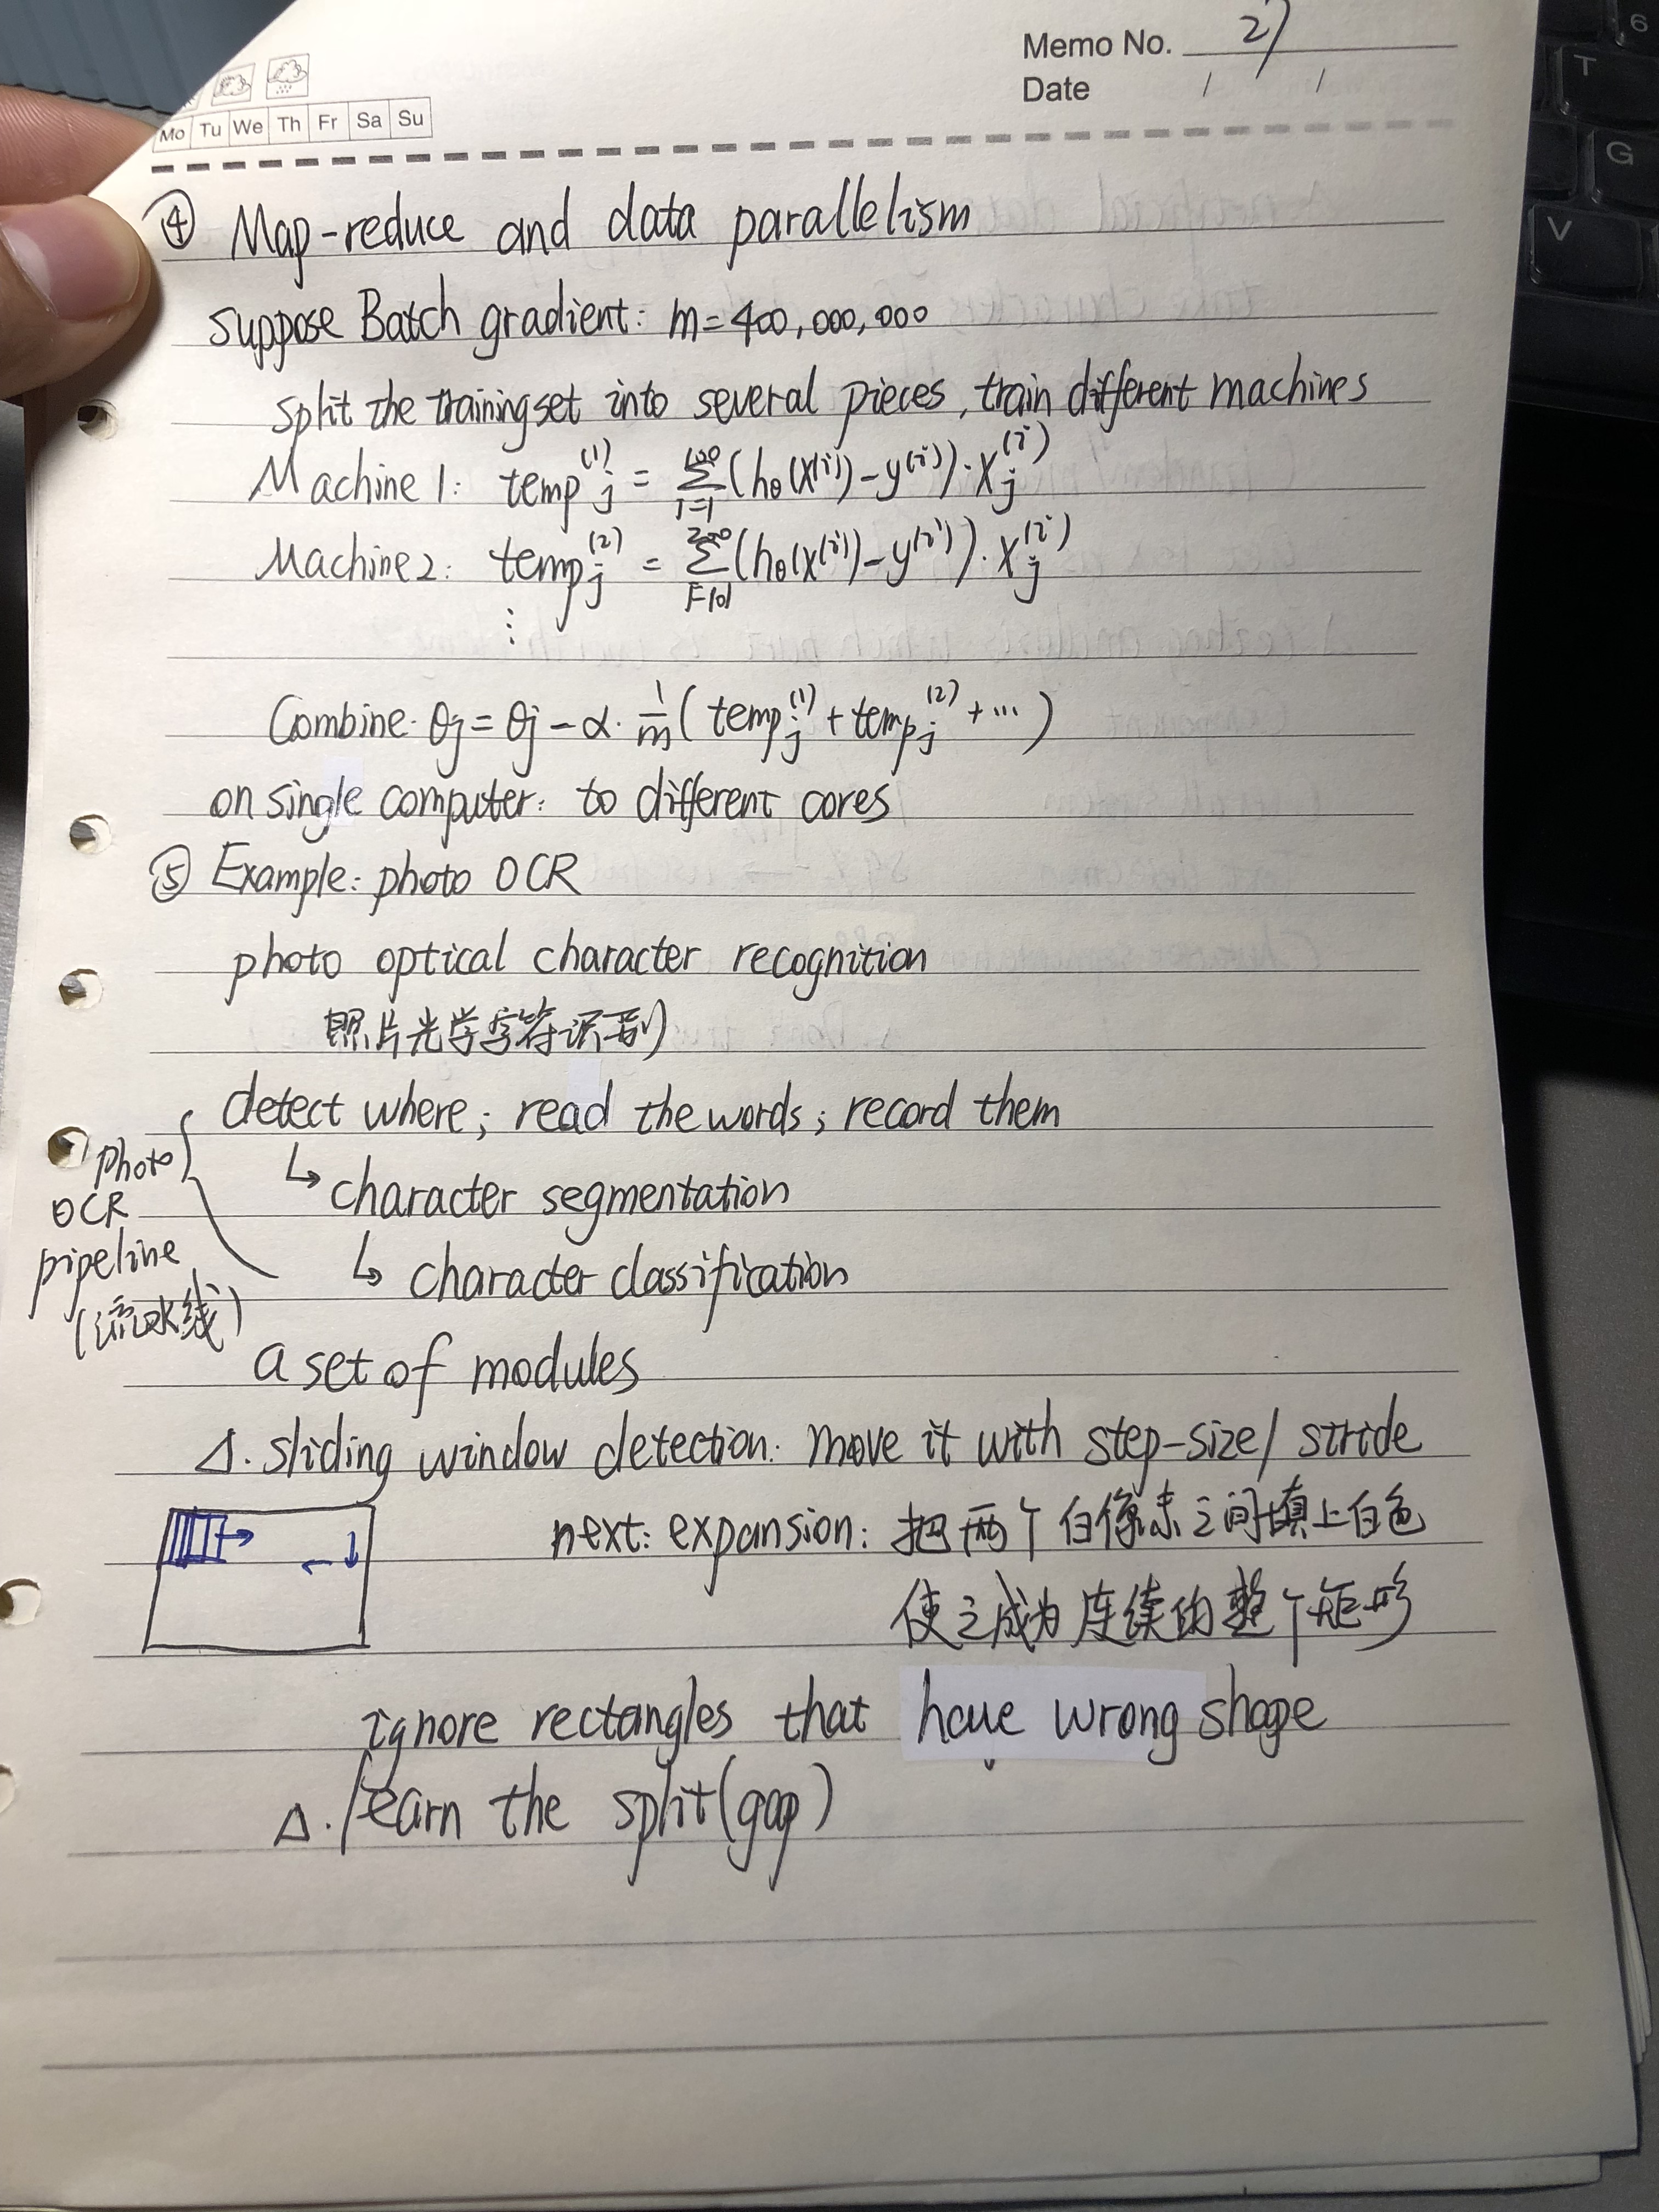 Memo No. 27
Date / /
Mo Tu We Th Fr Sa Su
④ Map-reduce and data parallelism
suppose Batch gradient: m=400,000,000
split the training set into several pieces, train different machines
Machine 1: temp_j^(1) = Σ_{i=1}^{100} (h_θ(x^(i)) - y^(i)) · x_j^(i)
Machine 2: temp_j^(2) = Σ_{i=101}^{200} (h_θ(x^(i)) - y^(i)) · x_j^(i)
⋮
Combine. θj = θj - α · 1/m ( temp_j^(1) + temp_j^(2) + ⋯ )
on single computer: to different cores
⑤ Example: photo OCR
photo optical character recognition
照片光学字符识别
detect where; read the words; record them
↳ character segmentation
↳ character classification
photo
OCR
pipeline
(流水线)
a set of modules
Δ. sliding window detection: move it with step-size/ stride
next: expansion: 把两个白像素之间填上白色
使之成为连续的整个矩形
ignore rectangles that have wrong shape
Δ. learn the split (gap)
6
T
G
V